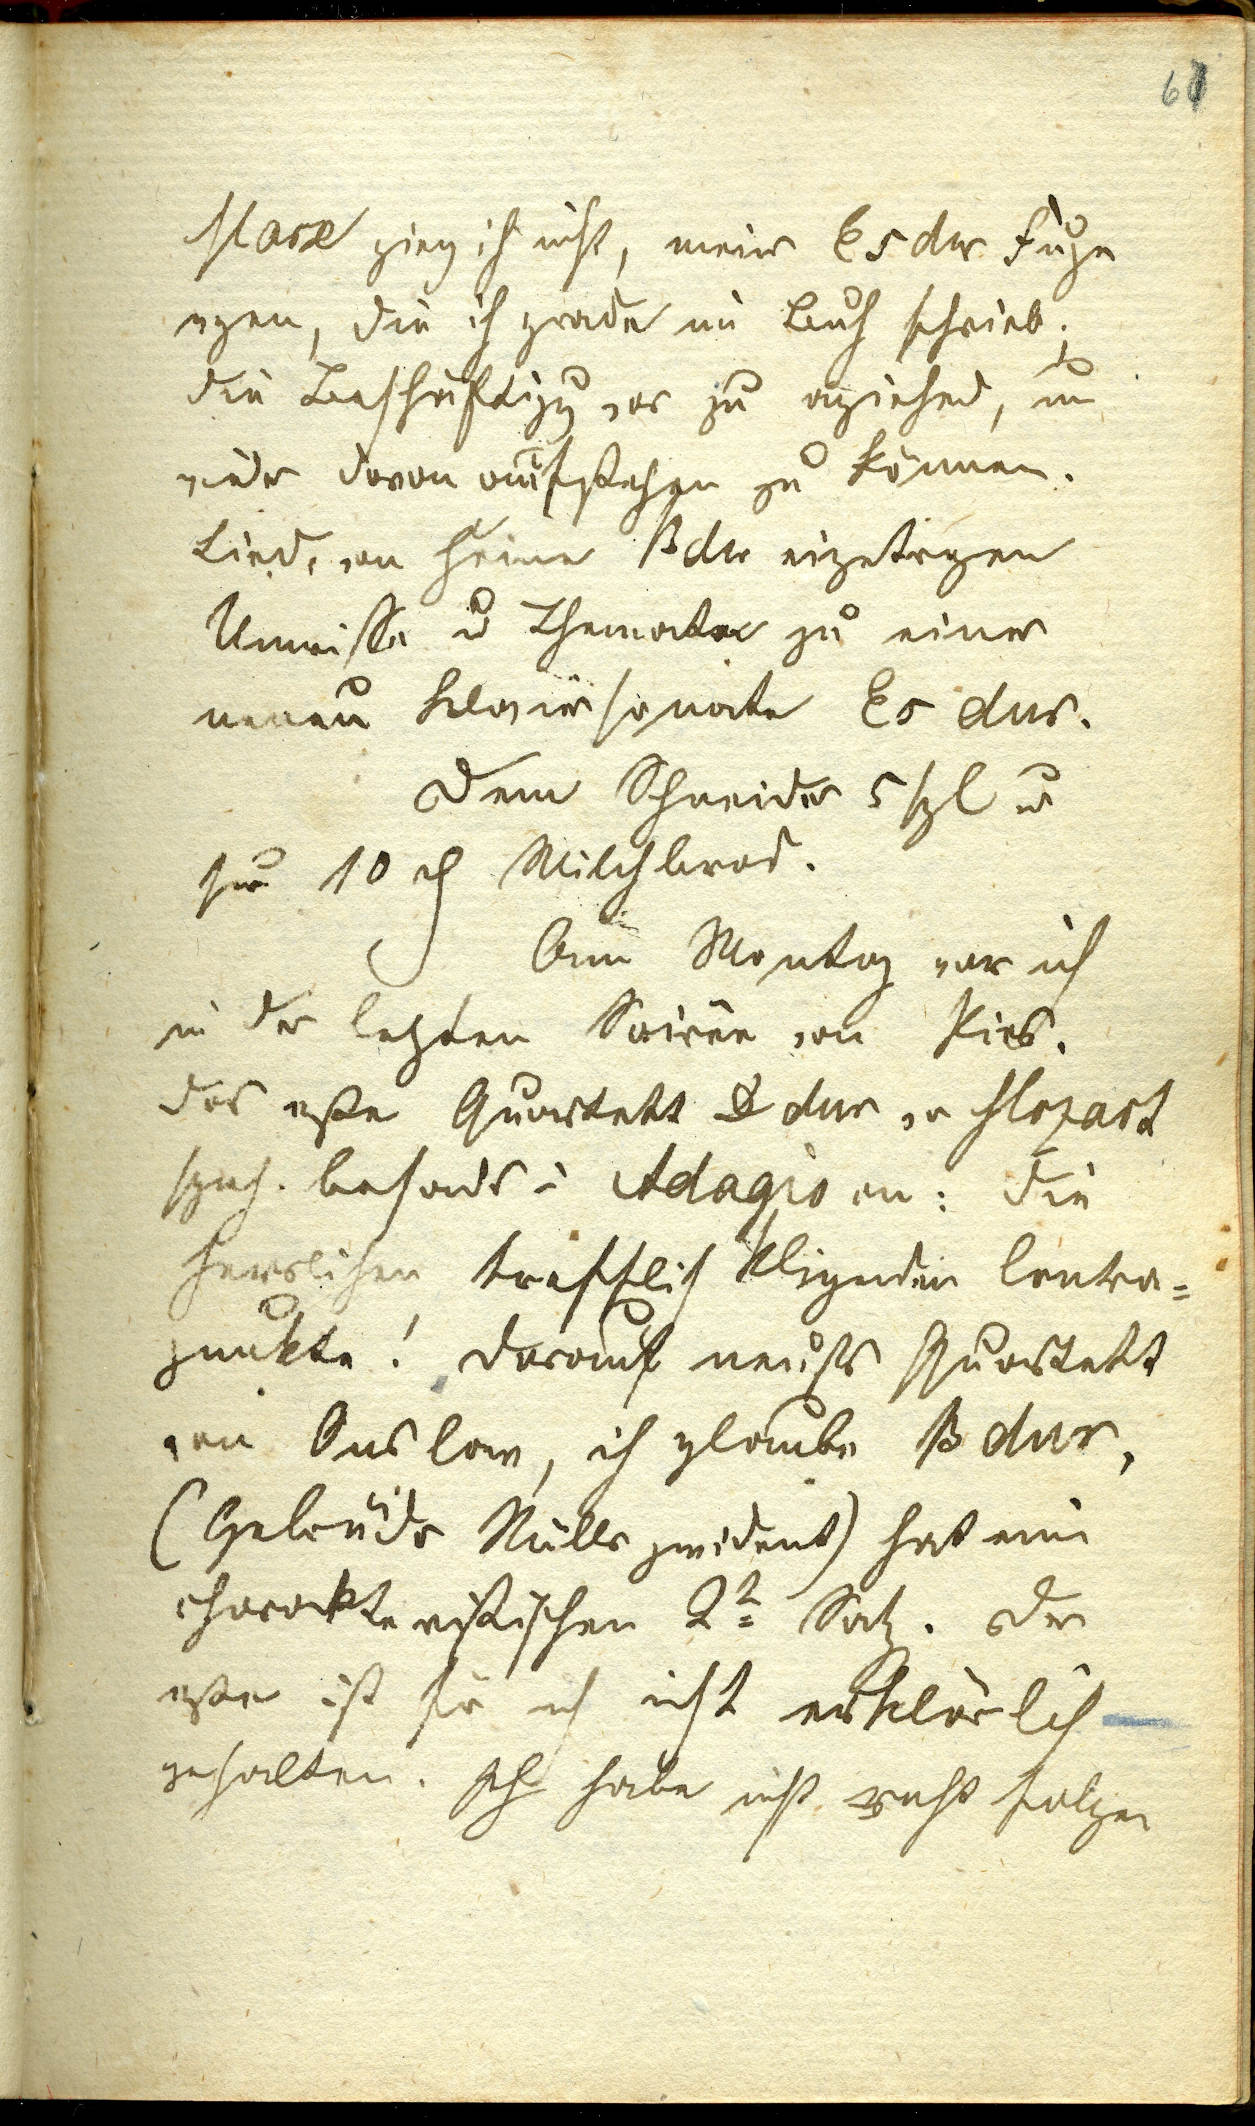 61
Marx ging ich nicht, meiner Es dur Fuge
wegen, die ich grade in's Buch schrieb;
die Beschäftigg war zu anziehend, um
wieder davon aufstehen zu können.
Lied, von Heine B dur eingetragen
Umrisse u Themata zu einer
neuen Klaviersonate Es dur.
Dem Schneider 5 sgl u
für 10 Milchbrod.
Am Montag war ich
in der letzten Soirée von Ries.
das erste Quartett D dur v Mozart
sprach besonders i Adagio an: die
herrlichen trefflich klingenden Contra=
punkte! darauf neustes Quartett
von Onslow, ich glaube B dur,
(Gebrüder Müller zueident) hat ein
charackteristischen 2ᵗ Satz. Der
erste ist für mich nicht erklärlich
gehalten. Ich habe nicht recht folgen